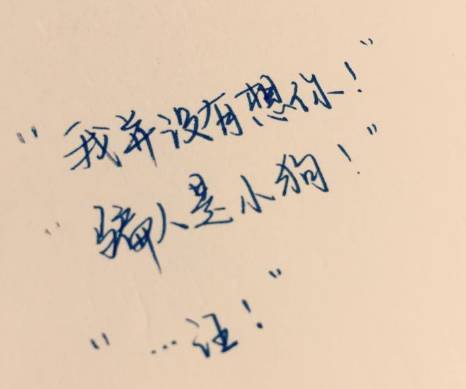 "我并没有想你！"
"骗人是小狗！"
"…汪！"